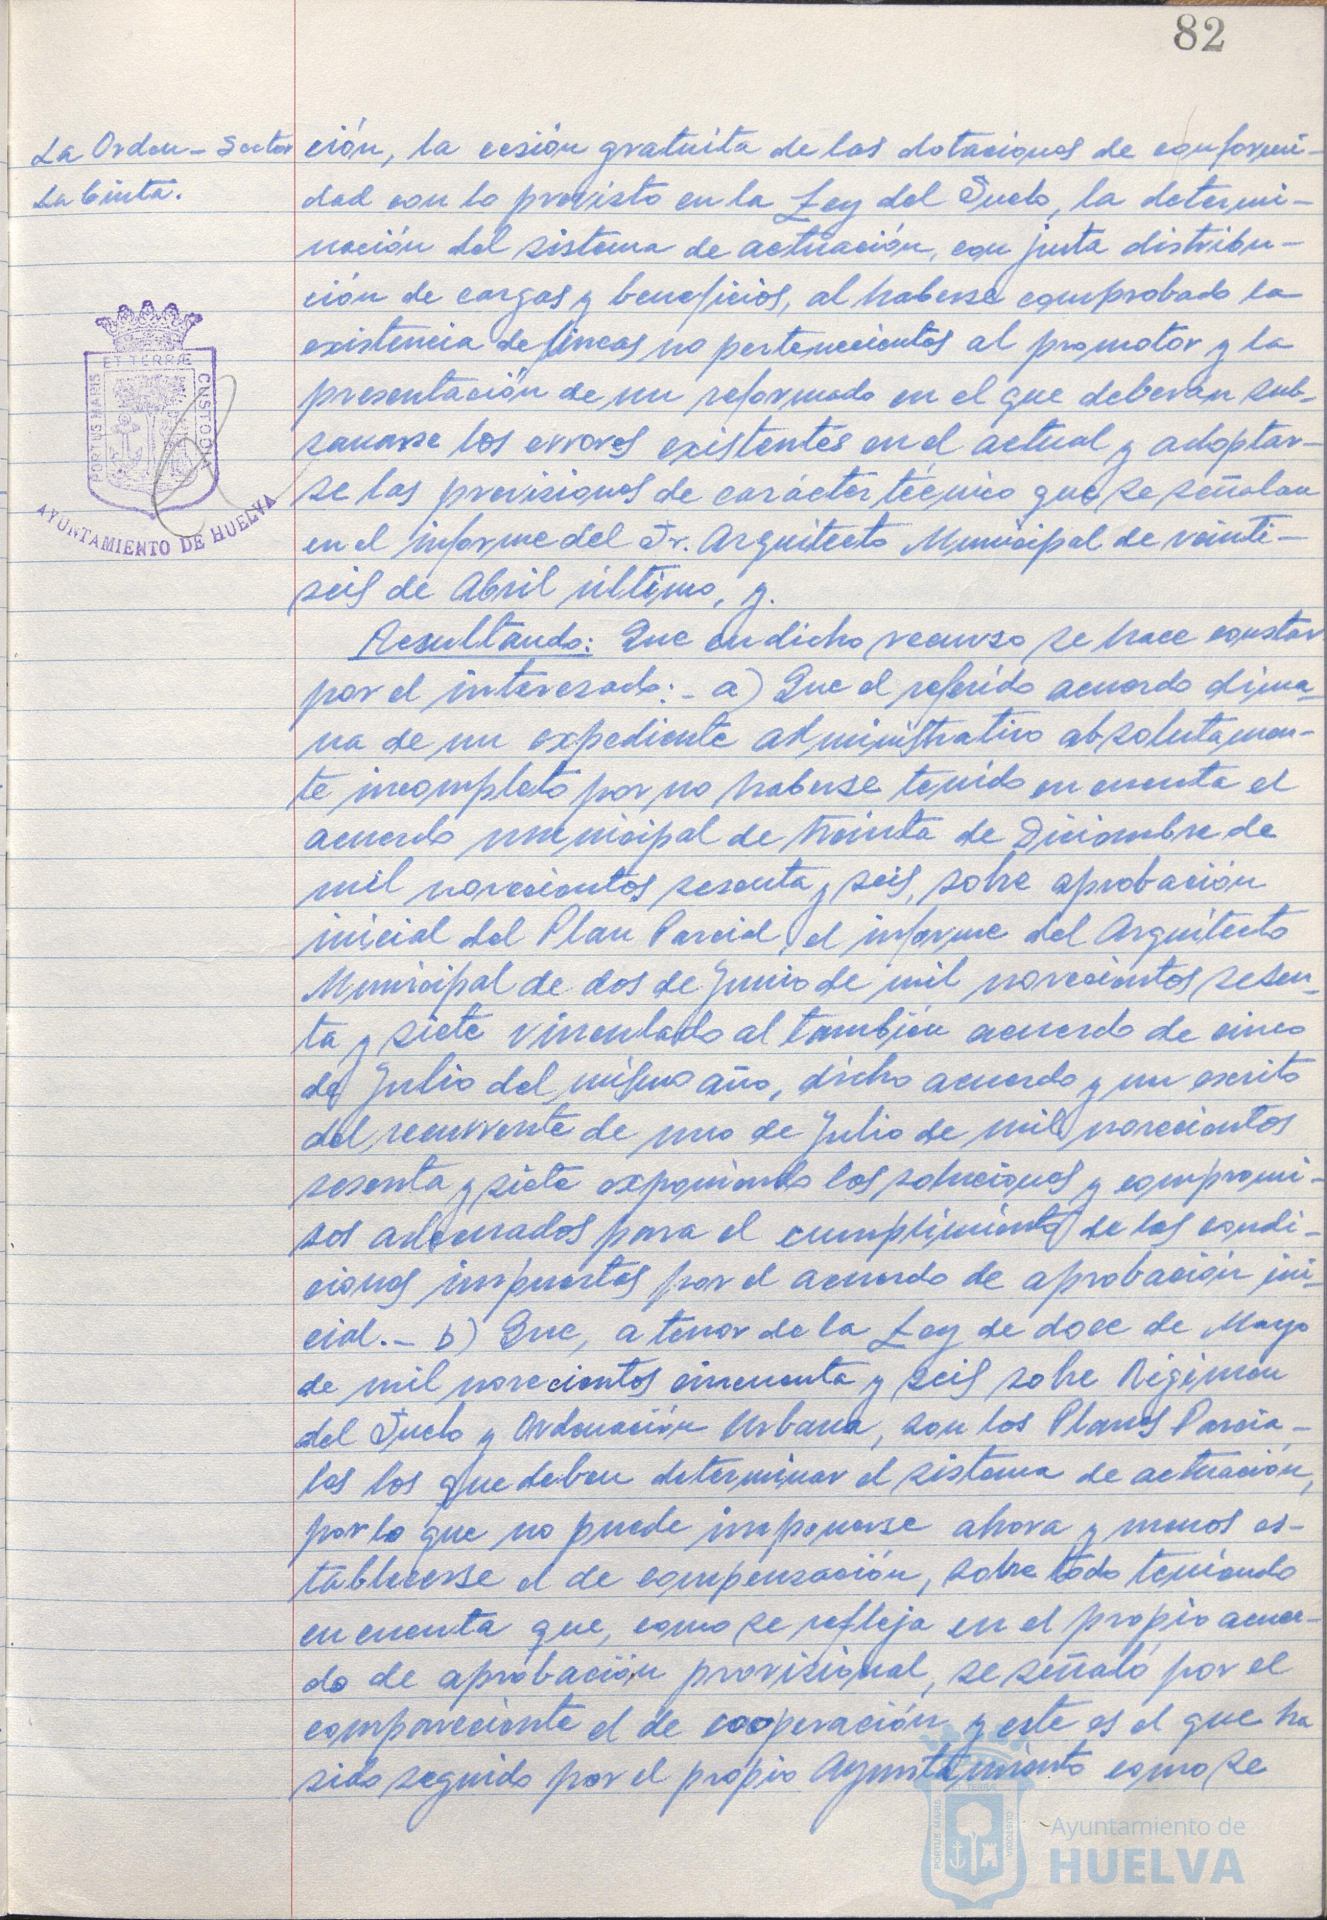 82
La Orden - Sector
La Cinta.
ción, la cesión gratuita de las dotaciones de conformi-
dad con lo previsto en la Ley del Suelo, la determi-
nación del sistema de actuación, con justa distribu-
ción de cargas y beneficios, al haberse comprobado la
existencia de fincas no pertenecientes al promotor y la
presentación de un reformado en el que deberan sub-
sanarse los errores existentes en el actual y adoptar-
se las previsiones de carácter técnico que se señalan
en el informe del Sr. Arquitecto Municipal de veinti-
seis de Abril último, y.
Resultando: Que en dicho recurso se hace constar
por el interesado:- a) Que el referido acuerdo dima-
na de un expediente administrativo absolutamen-
te incompleto por no haberse tenido en cuenta el
acuerdo municipal de treinta de Diciembre de
mil novecientos sesenta y seis, sobre aprobación
inicial del Plan Parcial, el informe del Arquitecto
Municipal de dos de Junio de mil novecientos sesen-
ta y siete vinculado al también acuerdo de cinco
de Julio del mismo año, dicho acuerdo y un escrito
del recurrente de uno de Julio de mil novecientos
sesenta y siete exponiendo las soluciones y compromi-
sos adecuados para el cumplimiento de las condi-
ciones impuestas por el acuerdo de aprobación ini-
cial.- b) Que, a tenor de la Ley de doce de Mayo
de mil novecientos cincuenta y seis sobre Régimen
del Suelo y Ordenación Urbana, son los Planes Parcia-
les los que deben determinar el sistema de actuación,
por lo que no puede imponerse ahora y menos es-
tablecerse el de compensación, sobre todo teniendo
en cuenta que, como se refleja en el propio acuer-
do de aprobación provisional, se señaló por el
compareciente el de cooperación y este es el que ha
sido seguido por el propio Ayuntamiento como se
PORTUS MARIS ET TERRÆ CUSTODIA
AYUNTAMIENTO DE HUELVA
PORTUS MARIS ET TERRA CUSTODIA
Ayuntamiento de
HUELVA